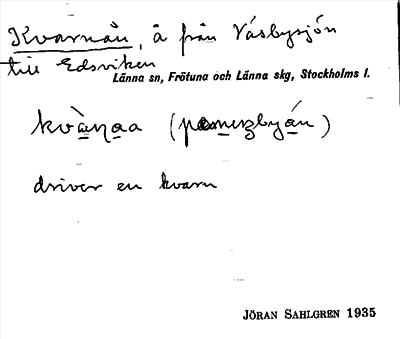 Kvarnån, å från Väsbysjön
till Edsviken
Länna sn, Frötuna och Länna skg, Stockholms l.
kvànaa
driver en kvarn
JÖRAN SAHLGREN 1935